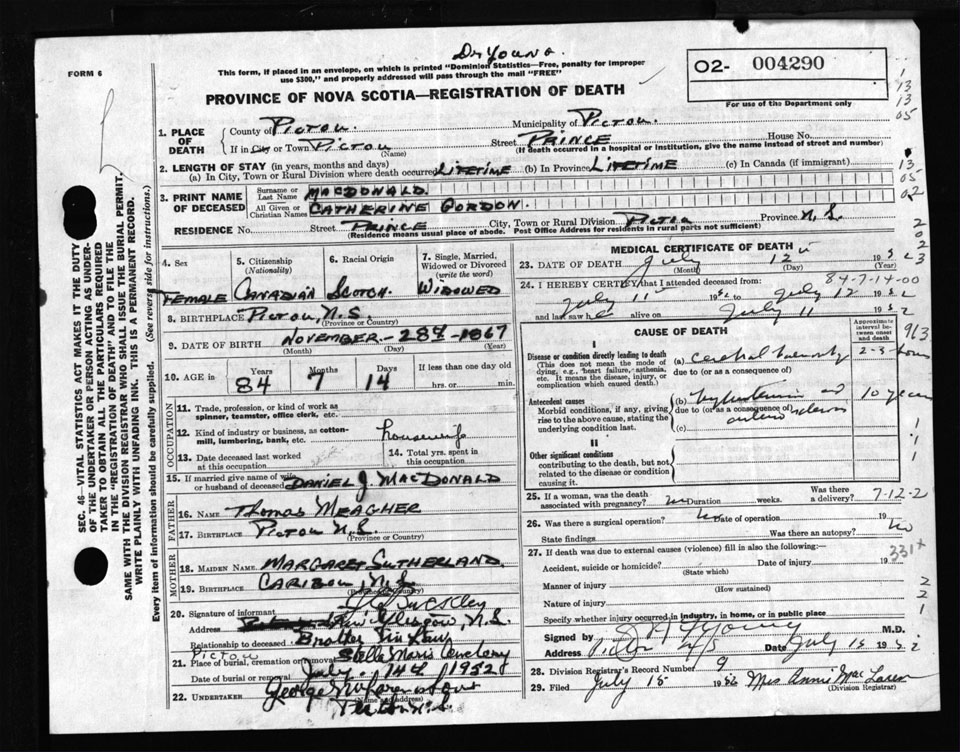 Dr Young.
FORM 6
This form, if placed in an envelope, on which is printed "Dominion Statistics—Free, penalty for improper
use $300," and properly addressed will pass through the mail "FREE"
02- 004290
For use of the Department only
PROVINCE OF NOVA SCOTIA—REGISTRATION OF DEATH
1. PLACE OF DEATH
County of Pictou. Municipality of Pictou.
If in City or Town Pictou (Name) Street Prince House No.
(If death occurred in a hospital or institution, give the name instead of street and number)
2. LENGTH OF STAY (in years, months and days)
(a) In City, Town or Rural Division where death occurred Lifetime (b) In Province Lifetime (c) In Canada (if immigrant)
3. PRINT NAME OF DECEASED
Surname or Last Name MacDonald.
All Given or Christian Names Catherine Gordon.
RESIDENCE No. Street Prince City, Town or Rural Division Province N.S.
(Residence means usual place of abode. Post Office Address for residents in rural parts not sufficient)
4. Sex Female
5. Citizenship (Nationality) Canadian
6. Racial Origin Scotch
7. Single, Married, Widowed or Divorced (write the word) Widowed
8. BIRTHPLACE Pictou, N.S.
(Province or Country)
9. DATE OF BIRTH November-28th-1867
(Month) (Day) (Year)
10. AGE in Years 84 Months 7 Days 14 If less than one day old
hrs. or min.
OCCUPATION
11. Trade, profession, or kind of work as
spinner, teamster, office clerk, etc.
12. Kind of industry or business, as cotton-
mill, lumbering, bank, etc. housewife
13. Date deceased last worked
at this occupation
14. Total yrs. spent in
this occupation
15. If married give name of wife
or husband of deceased Daniel J. MacDonald
FATHER
16. Name Thomas Meagher
17. Birthplace Pictou N.S.
(Province or Country)
MOTHER
18. Maiden Name Margaret Sutherland
19. Birthplace Caribou, N.S.
(Province or Country)
20. Signature of informant
Address New Glasgow, N.S.
Relationship to deceased Brother in Law
Pictou
21. Place of burial, cremation or removal Stella Maris Cemetery
Date of burial or removal July. 14th 1952
22. UNDERTAKER George
(Name and address)
Pictou N.S.
MEDICAL CERTIFICATE OF DEATH
23. DATE OF DEATH July 12th 1952
(Month) (Day) (Year)
84-7-14-00
24. I HEREBY CERTIFY that I attended deceased from:
July 11th 1952 to July 12 1952
and last saw h alive on July 11 1952
CAUSE OF DEATH
Approximate interval between onset and death
I
Disease or condition directly leading to death
(This does not mean the mode of dying, e.g., heart failure, asthenia, etc. It means the disease, injury, or complication which caused death.)
(a) cerebral 2-3 hours
due to (or as a consequence of)
Antecedent causes
Morbid conditions, if any, giving rise to the above cause, stating the underlying condition last.
(b) hypertension and 10 years
due to (or as a consequence of)
(c)
II
Other significant conditions
contributing to the death, but not related to the disease or condition causing it
25. If a woman, was the death
associated with pregnancy? no Duration weeks. Was there
a delivery? 7-12-2
26. Was there a surgical operation? No Date of operation 19
State findings Was there an autopsy? No
27. If death was due to external causes (violence) fill in also the following:—
Accident, suicide or homicide? Date of injury 19
(State which)
331+
Manner of injury
(How sustained)
Nature of injury
Specify whether injury occurred in industry, in home, or in public place
Signed by Young M.D.
Address Pictou N/S Date July 15 1952
28. Division Registrar's Record Number 9
29. Filed July 15 1952 Mrs Annie MacLaren
(Division Registrar)
SEC. 46—VITAL STATISTICS ACT MAKES IT THE DUTY
OF THE UNDERTAKER OR PERSON ACTING AS UNDER-
TAKER TO OBTAIN ALL THE PARTICULARS REQUIRED
IN THE "REGISTRATION OF DEATH" AND TO FILE THE
SAME WITH THE DIVISION REGISTRAR WHO SHALL ISSUE THE BURIAL PERMIT.
WRITE PLAINLY WITH UNFADING INK. THIS IS A PERMANENT RECORD.
Every item of information should be carefully supplied. (See reverse side for instructions.)
1
13
13
05
13
05
02
2
0
2
23
913
1
1
1
2
2
1